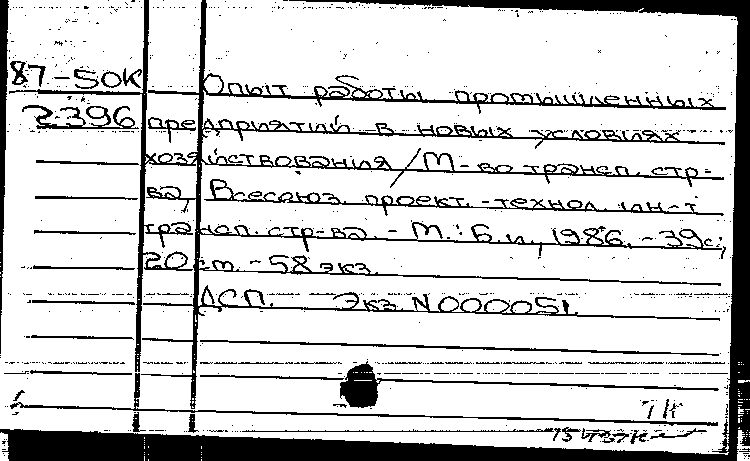 87-50К Опыт работы промышленных
2396 предприятий в новых условиях
хозяйствования / М-во трансп. стр-
ва, Всесоюз. проект.-технол. ин-т
трансп. стр-ва. - М.: Б.и., 1986. - 39с.;
20 см. - 58 экз.
ДСП. Экз. N000051.